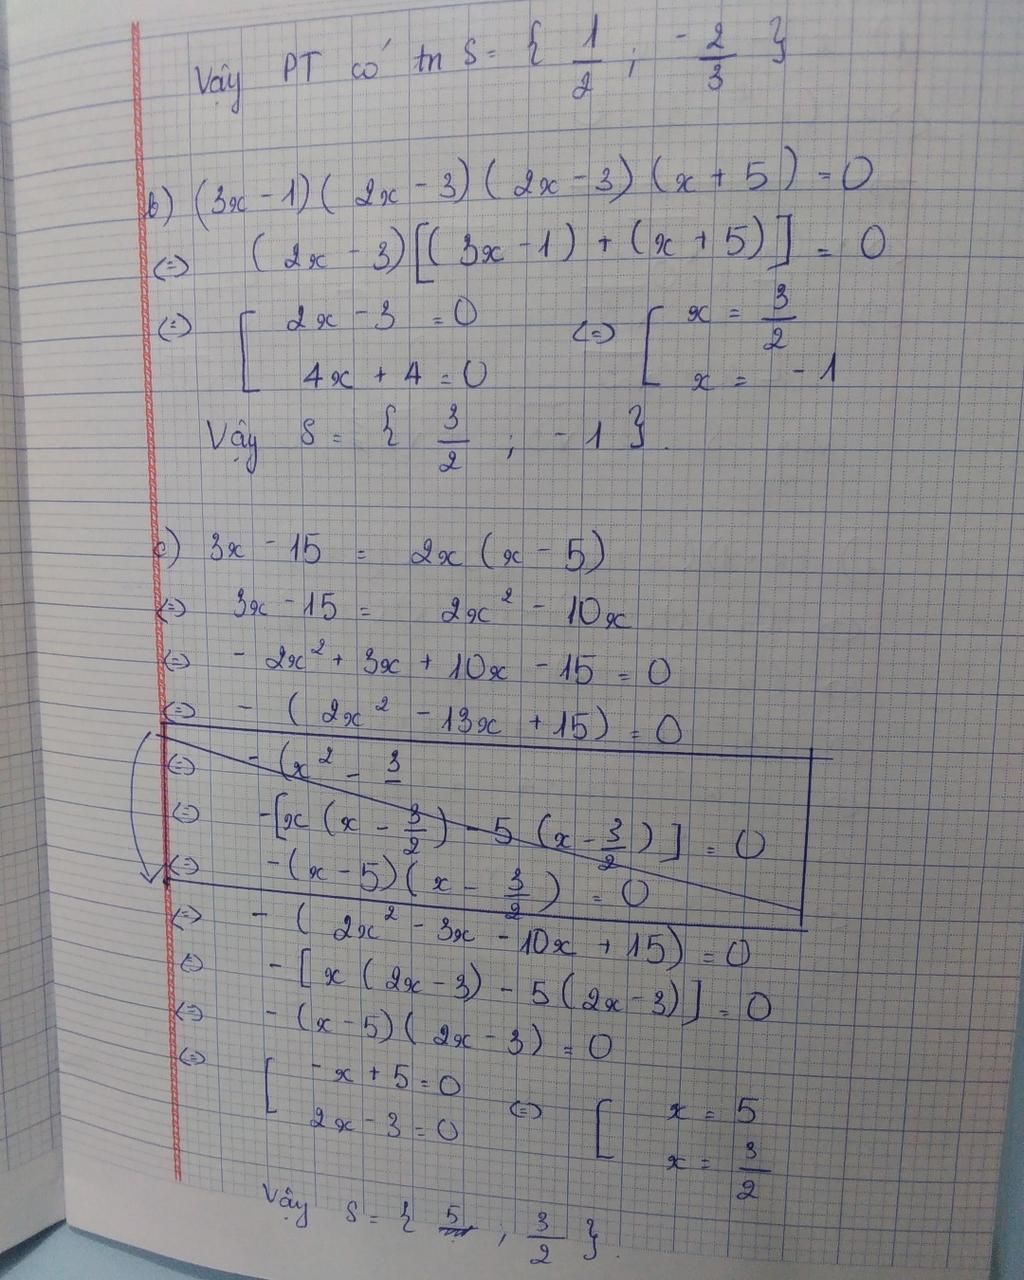 Vậy PT có tn S = { 1/2 ; -2/3 }
b) (3x - 1)( 2x - 3)( 2x - 3) (x + 5) = 0
<=> ( 2x - 3)[( 3x - 1) + (x + 5)] = 0
<=> [ 2x - 3 = 0 <=> [ x = 3/2
4x + 4 = 0 x = - 1
Vậy S = { 3/2 ; - 1 }.
c) 3x - 15 = 2x (x - 5)
<=> 3x - 15 = 2x² - 10x
<=> - 2x² + 3x + 10x - 15 = 0
<=> - ( 2x² - 13x + 15) = 0
<=> - (x² - 3
<=> -[x (x - 3/2) - 5 (x - 3/2)] = 0
<=> -(x - 5)(x - 3/2) = 0
<=> - ( 2x² - 3x - 10x + 15) = 0
<=> - [ x ( 2x - 3) - 5 ( 2x - 3)] = 0
<=> - (x - 5)( 2x - 3) = 0
<=> [ - x + 5 = 0 <=> [ x = 5
2x - 3 = 0 x = 3/2
Vậy S = { 5 ; 3/2 }.